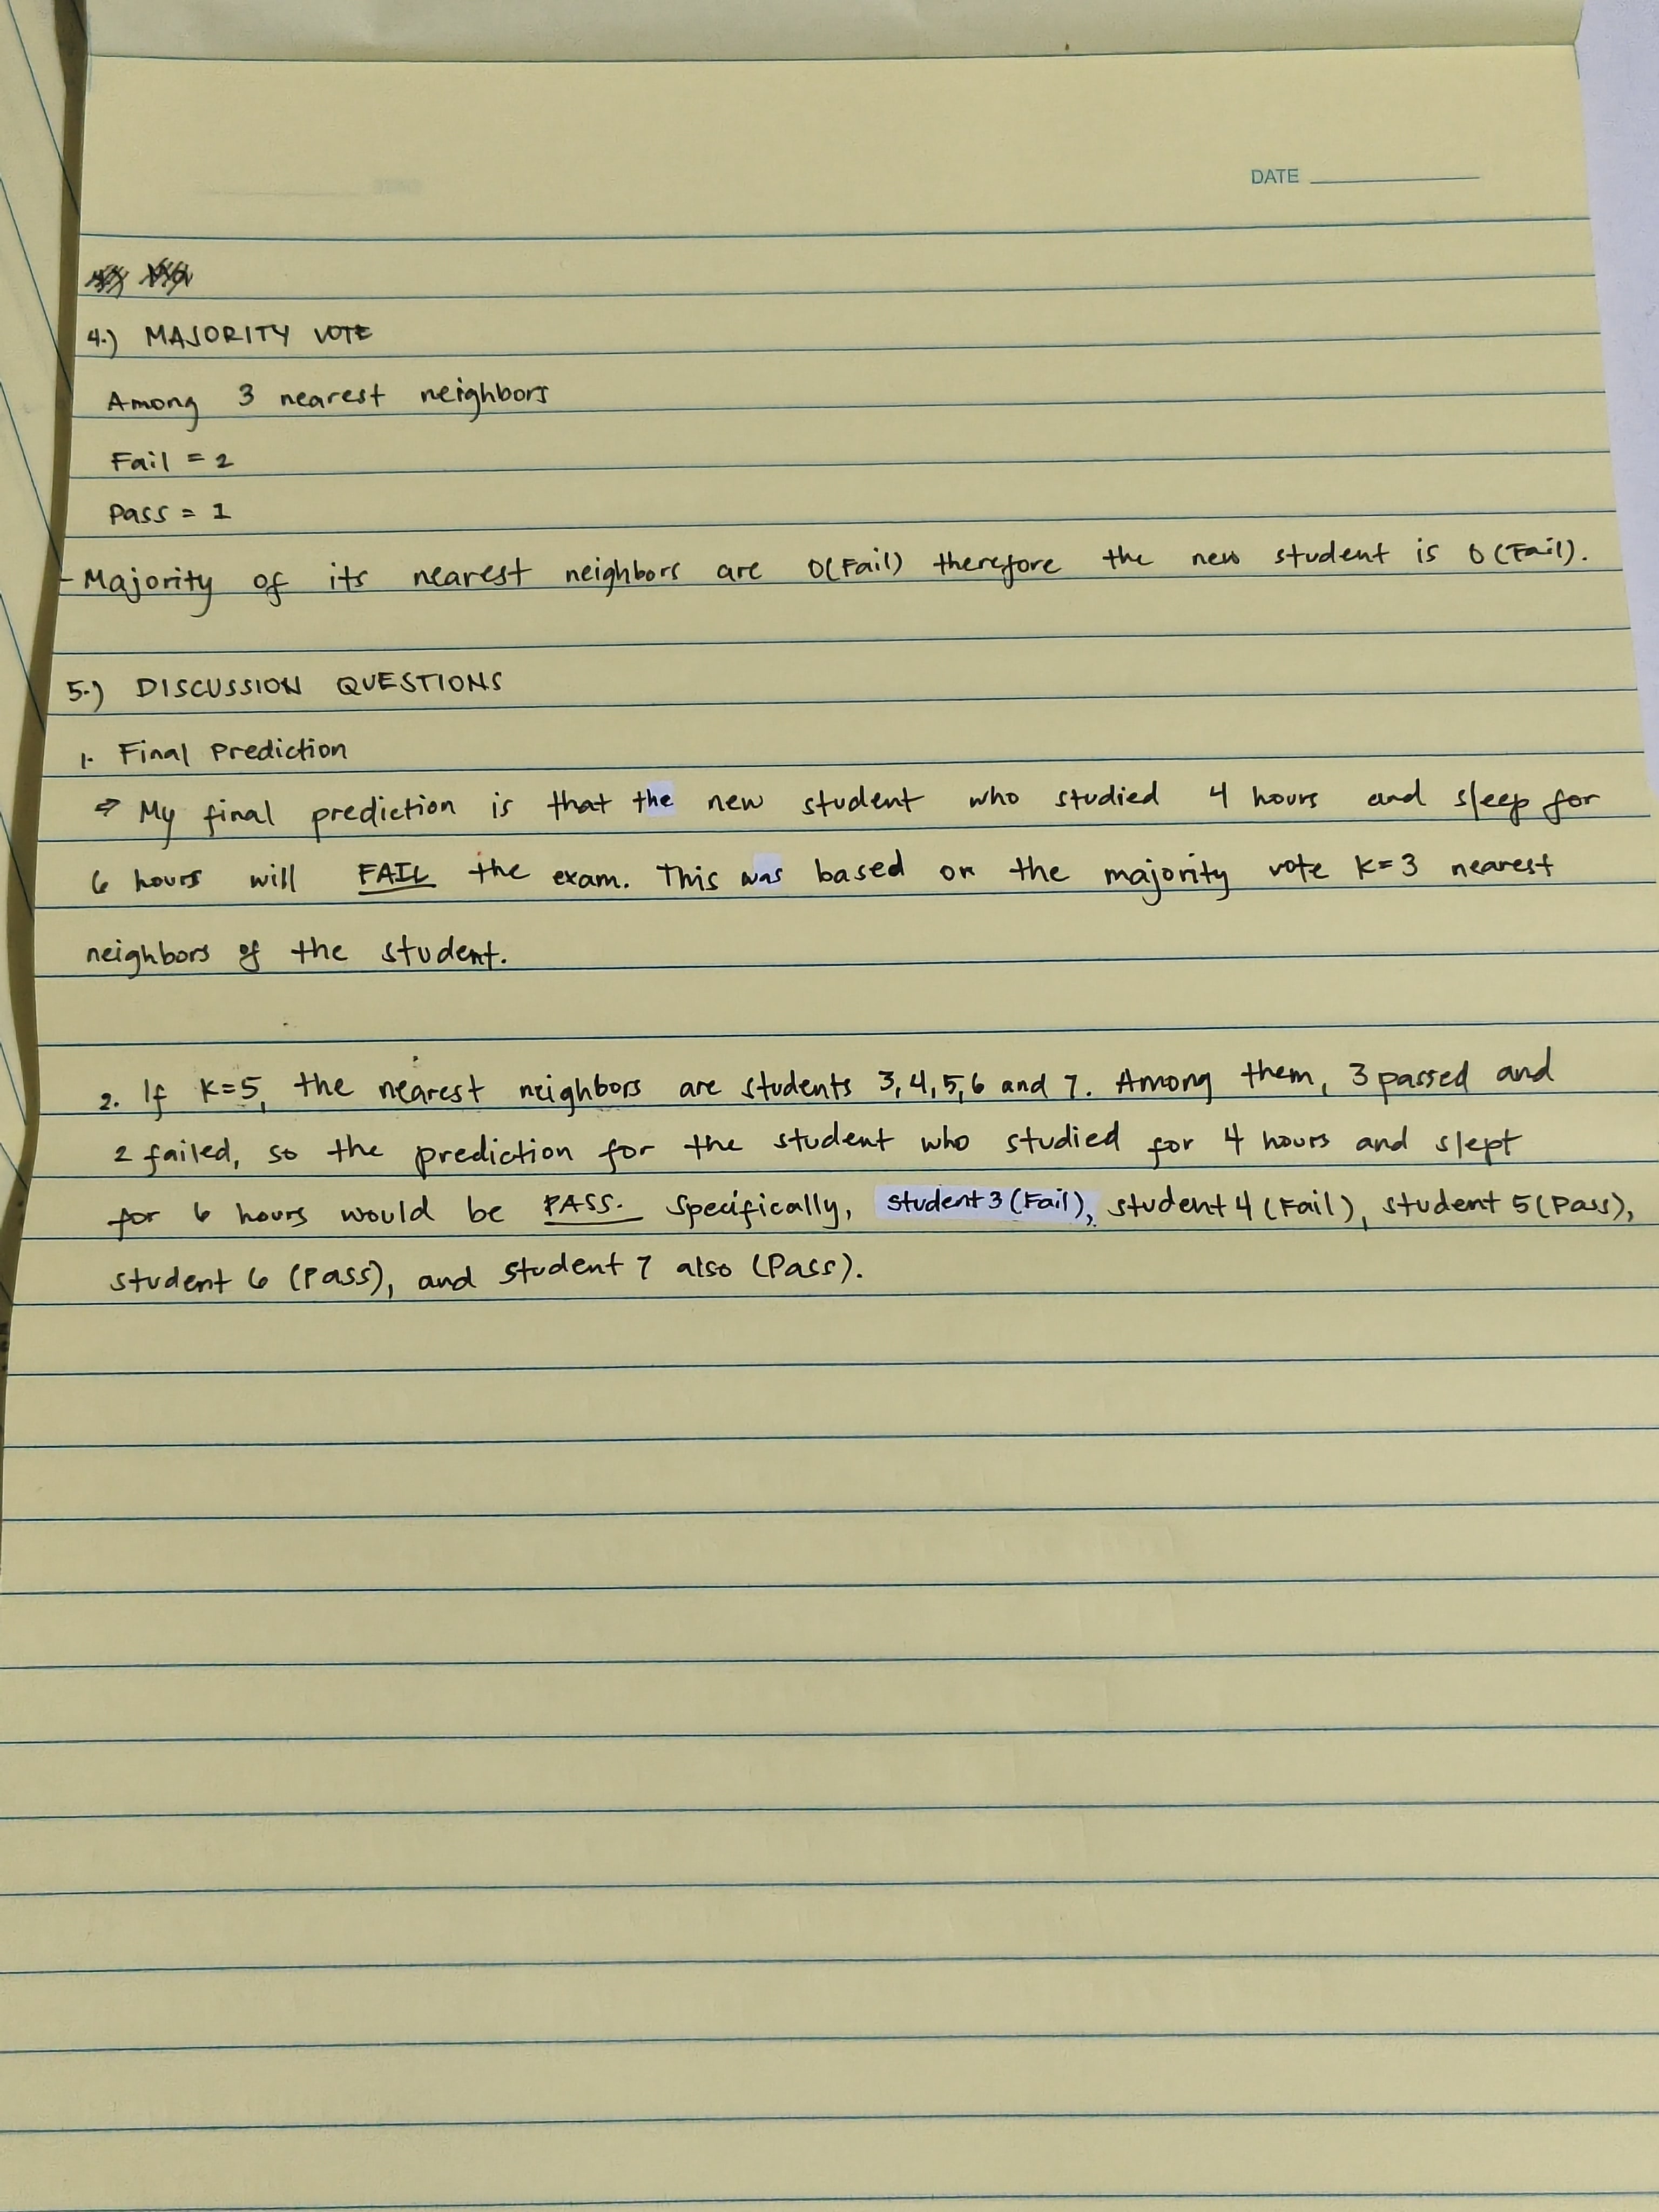 DATE
4.) MAJORITY VOTE
Among 3 nearest neighbors
Fail = 2
Pass = 1
- Majority of its nearest neighbors are 0(Fail) therefore the new student is 0 (Fail).
5.) DISCUSSION QUESTIONS
1. Final Prediction
⇒ My final prediction is that the new student who studied 4 hours and sleep for
6 hours will FAIL the exam. This was based on the majority vote k=3 nearest
neighbors of the student.
2. If k=5, the nearest neighbors are students 3,4,5,6 and 7. Among them, 3 passed and
2 failed, so the prediction for the student who studied for 4 hours and slept
for 6 hours would be PASS. Specifically, student 3 (Fail), student 4 (Fail), student 5 (Pass),
student 6 (Pass), and student 7 also (Pass).